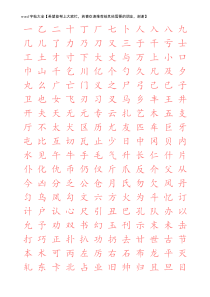 word字帖大全【希望能帮上大家忙，有需的请推荐给其他需要的朋友，谢谢】
一乙二十丁厂七卜人入八九
几儿了力乃刀又三于干亏士
工土才寸下大丈与万上小口
巾山千乞川亿个勺久凡及夕
丸么广亡门义之尸弓己已子
卫也女飞刃习叉马乡丰王井
开夫天无元专云扎艺木五支
厅不太犬区历尤友匹车巨牙
屯比互切瓦止少日中冈贝内
水见午牛手毛气升长仁什片
仆化仇币仍仅斤爪反介父从
今凶分乏公仓月氏勿欠风丹
匀乌凤勾文六方火为斗忆订
计户认心尺引丑巴孔队办以
允予劝双书幻玉刊示末未击
打巧正扑扒功扔去甘世古节
本术可丙左厉右石布龙平灭
轧东卡北占业旧帅归且旦目